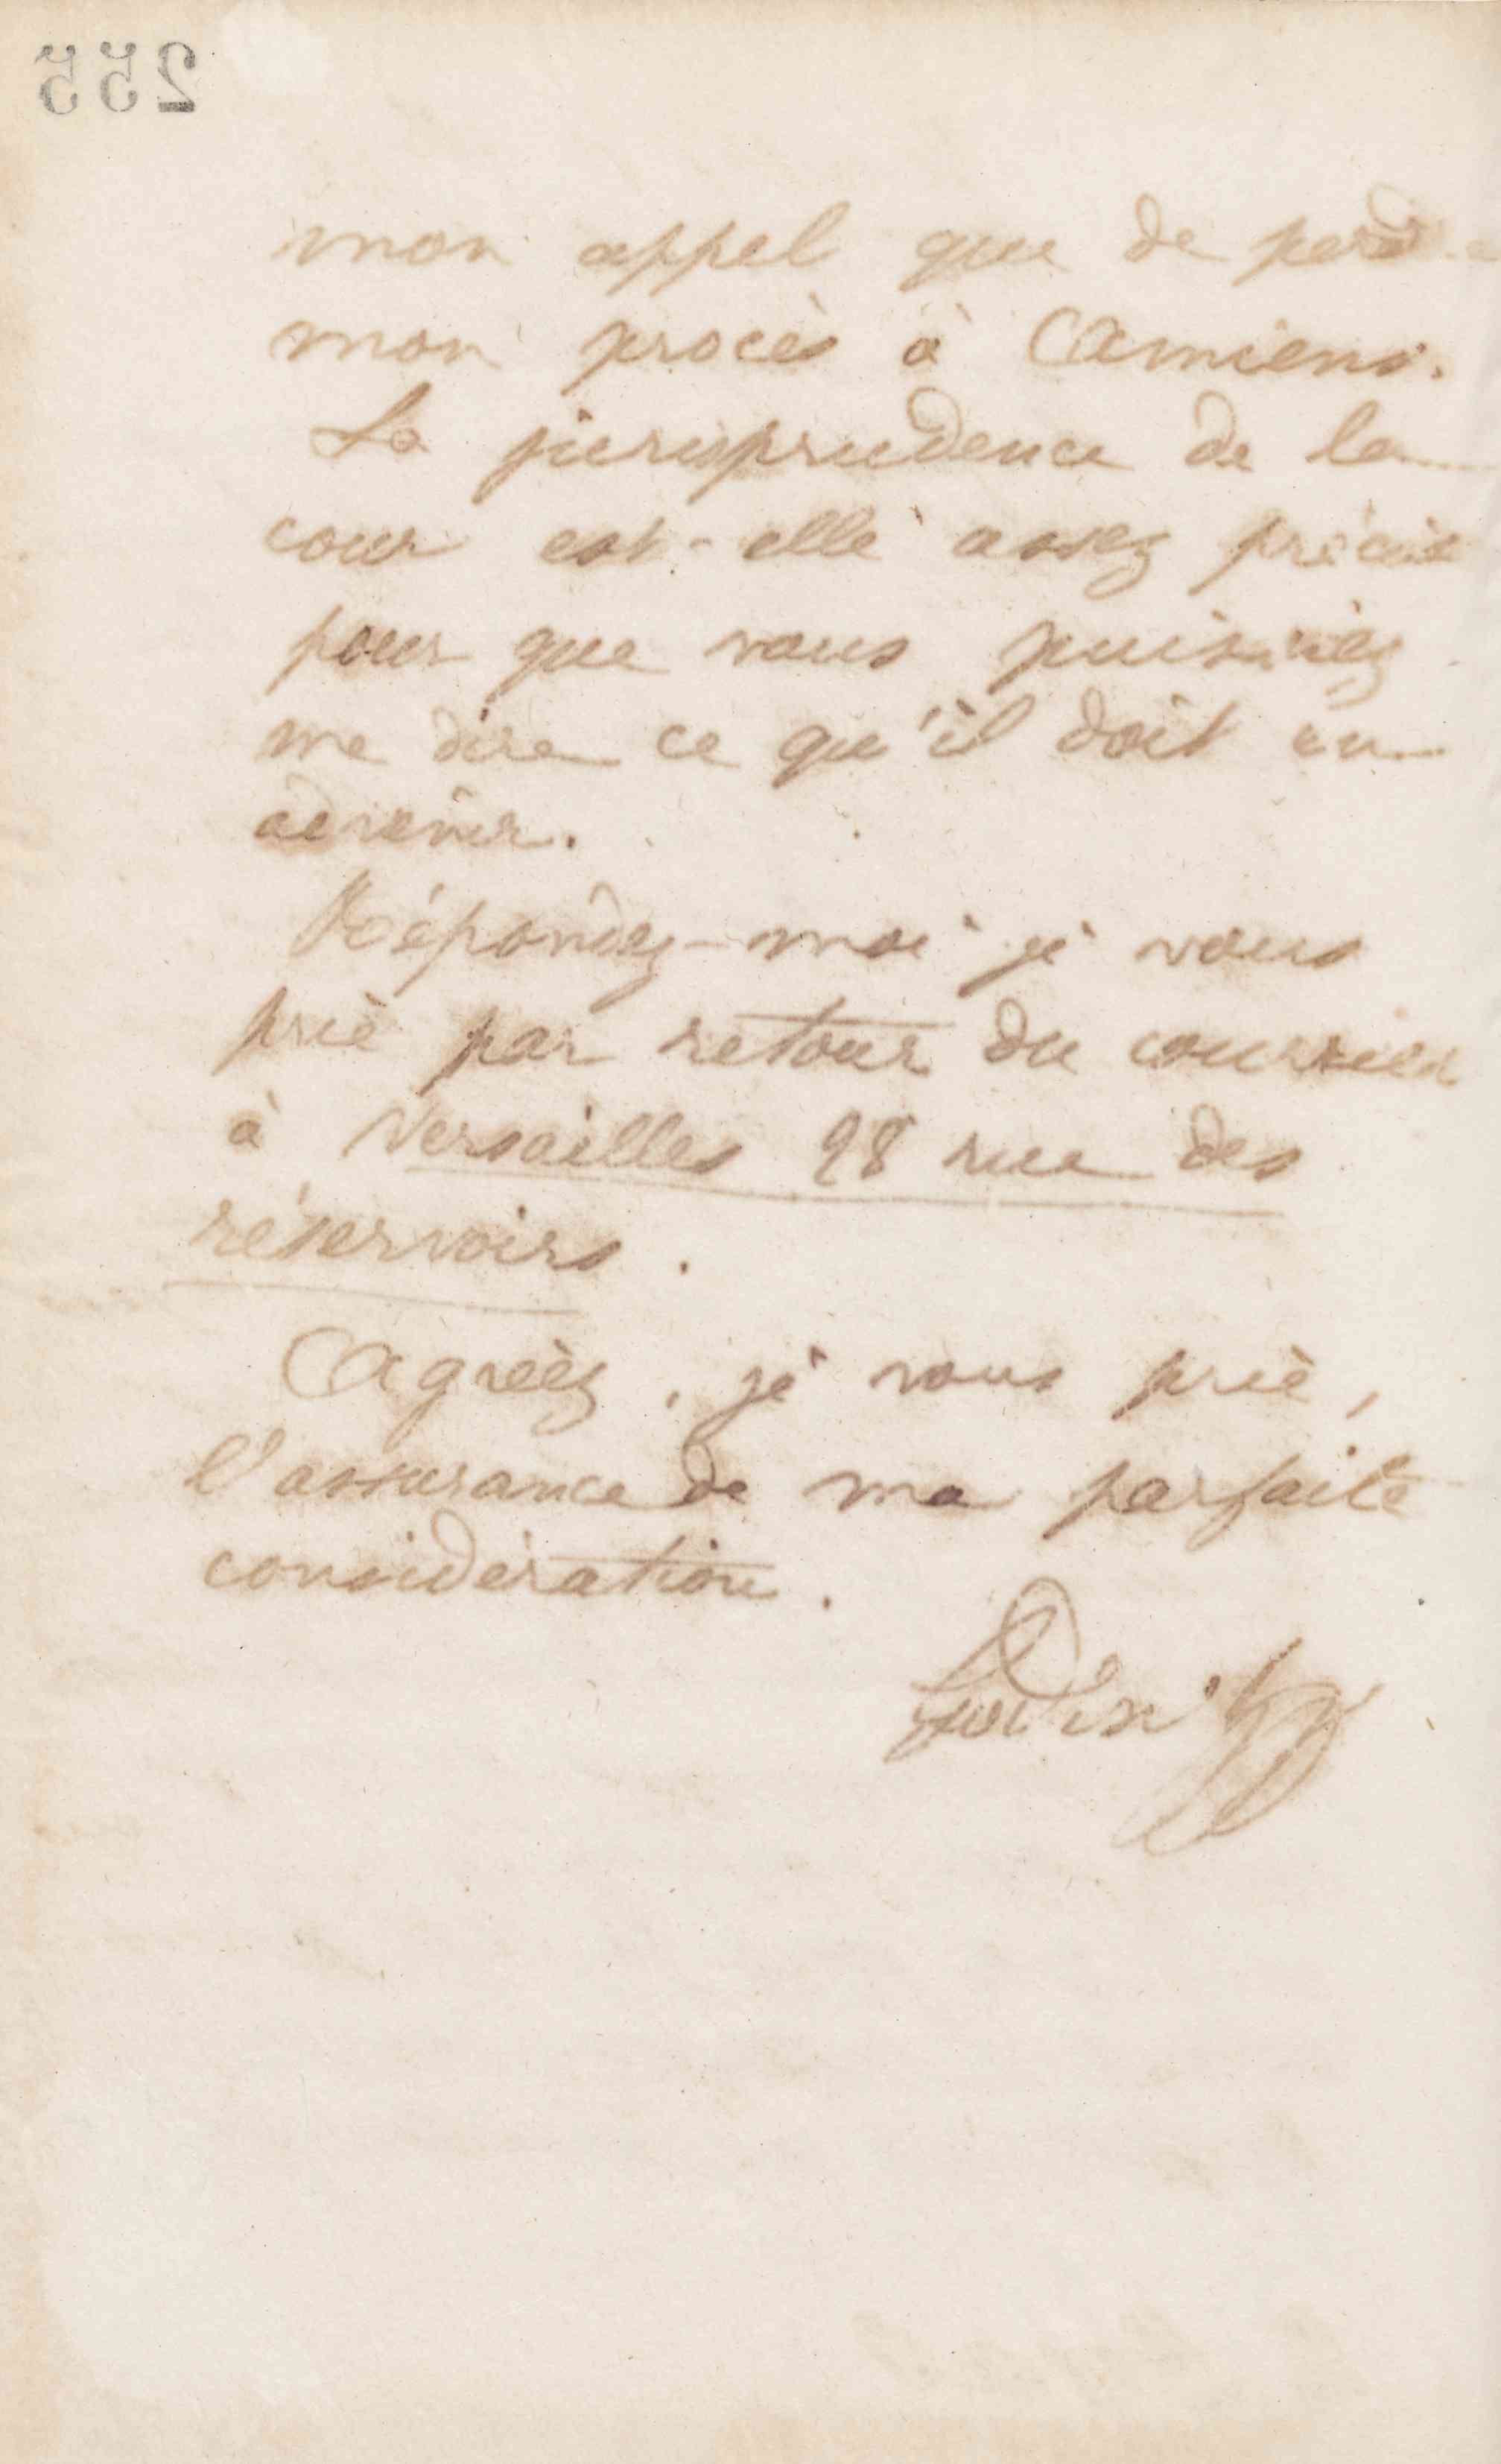 255
mon appel que de perdre
mon procès à Amiens.
La jurisprudence de la
cour est-elle assez précise
pour que vous puissiez
me dire ce qu'il doit en
advenir.
Répondez-moi je vous
prie par retour du courrier
à Versailles 28 rue des
réservoirs.
Agréez, je vous prie,
l'assurance de ma parfaite
considération.
Godin